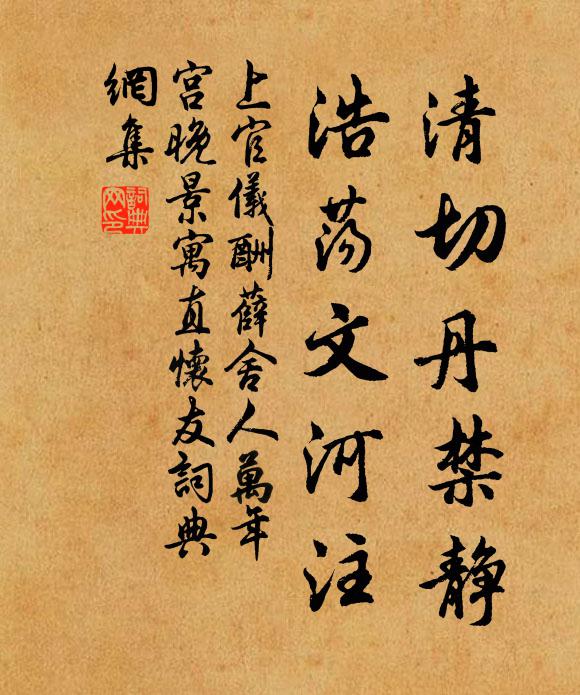 清切丹禁静
浩荡文河注
上官儀酬薛舍人萬年
宫晚景寓直懷友詞典
網集
詞典网印